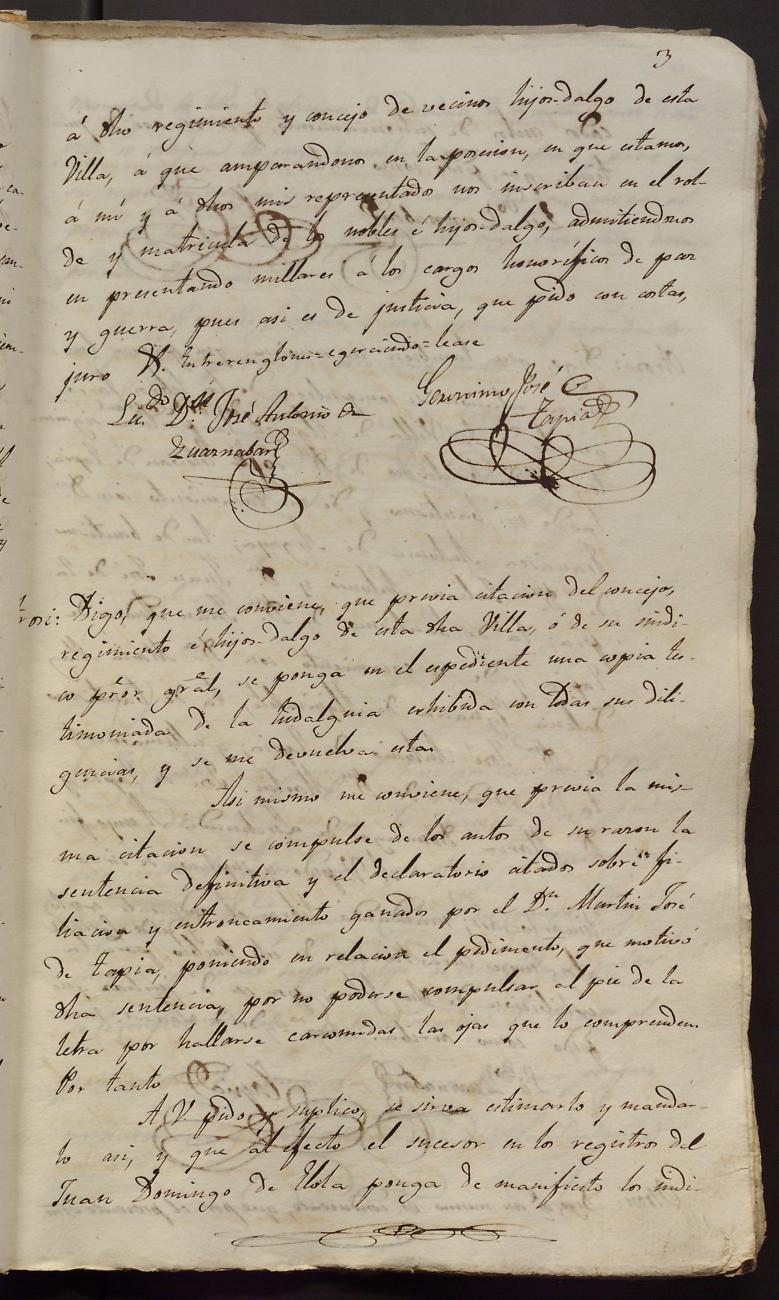 3
á dho regimiento y concejo de vecinos hijos-dalgo de esta
Villa, á que amparandonos en la posesion, en que estamos,
á mí y á dhos mis representados nos inscriban en el rol-
de y matricula de los nobles é hijos-dalgo, admitiendonos
en presentando millares á los cargos honoríficos de paz
y guerra, pues asi es de justicia, que pido con costas,
juro &. Entrerenglones=egerciendo=lease
Lic.do D.n José Antonio de
Zuaznabar
Geronimo José
Tapia
Digo, que me conviene, que previa citacion del concejo,
regimiento é hijos-dalgo de esta dha Villa, ó de su sindi-
co pror gral, se ponga en el espediente una copia tes-
timoniada de la hidalguia exhibida con todas sus dili-
gencias, y se me devuelva esta.
Asi mismo me conviene, que previa la mis-
ma citacion se compulse de los autos de su razon la
sentencia definitiva y el declaratorio citados sobre fi-
liacion y entroncamiento ganados por el D.n Martin José
de Tapia, poniendo en relacion el pedimento, que motivó
dha sentencia, por no poderse compulsar al pie de la
letra por hallarse carcomidas las ojas que lo comprenden.
Por tanto
A V. pido y suplico, se sirva estimarlo y mandar-
lo asi, y que al efecto el sucesor en los registros del
Juan Domingo de ponga de manifiesto los indi-